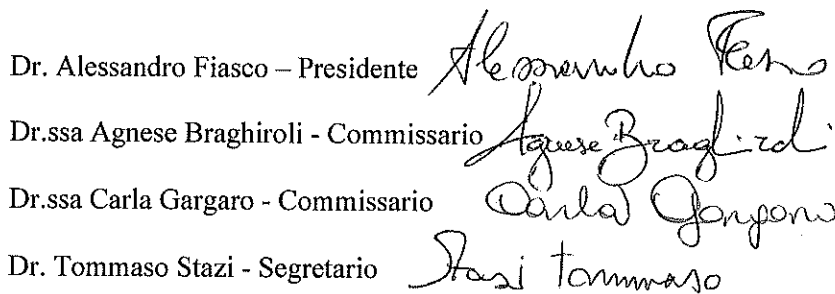 Dr. Alessandro Fiasco – Presidente Alessandro Fiasco
Dr.ssa Agnese Braghiroli - Commissario Agnese Braghiroli
Dr.ssa Carla Gargaro - Commissario Carla Gargaro
Dr. Tommaso Stazi - Segretario Stazi Tommaso